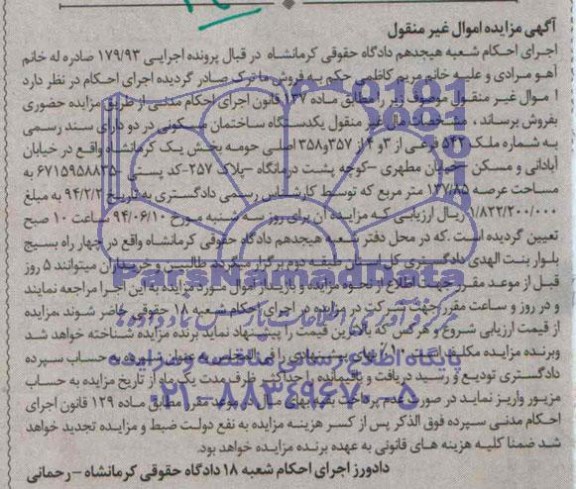 آگهی مزایده اموال غیر منقول
اجرای احکام شعبه هیجدهم دادگاه حقوقی کرمانشاه در قبال پرونده اجرایی ۱۷۹/۹۳ صادره له خانم
آهو مرادی و علیه خانم مریم کاظمی حکم به فروش ما ترک صادر گردیده اجرای احکام در نظر دارد
ا موال غیر منقول موصوف زیر را مطابق ماده ۱۳۷ قانون اجرای احکام مدنی از طریق مزایده حضوری
بفروش برساند، مشخصات مال غیر منقول یکدستگاه ساختمان مسکونی در دو دارای سند رسمی
به شماره ملک ۵۴۳ فرعی از ۳و ۴ از ۳۵۷و۳۵۸ اصلی حومه بخش یک کرمانشاه واقع در خیابان
آبادانی و مسکن خیابان مطهری -کوچه پشت درمانگاه -پلاک ۲۵۷-کد پستی ۶۷۱۵۹۵۸۸۳۵- به
مساحت عرصه ۱۳۷/۸۵ متر مربع که توسط کارشناس رسمی دادگستری به تاریخ ۹۴/۲/۲ به مبلغ
۱/۸۲۲/۲۰۰/۰۰۰ ریال ارزیابی که مزایده آن برای روز سه شنبه مورخ ۹۴/۰۶/۱۰ ساعت ۱۰ صبح
تعیین گردیده است .که در محل دفتر شعبه هیجدهم دادگاه حقوقی کرمانشاه واقع در چهار راه بسیج
بلوار بنت الهدی دادگستری کل استان طبقه دوم برگزار میگردد طالبین و خریداران میتوانند ۵ روز
قبل از موعد مقرر جهت اطلاع از نحوه مزایده و بازدید اموال مورد مزایده به این اجرا مراجعه نمایند
و در روز و ساعت مقرر جهت شرکت در مزایده در اجرای احکام شعبه ۱۸ حقوقی حاضر شوند مزایده
از قیمت ارزیابی شروع و هر کس که بالاترین قیمت را پیشنهاد نماید برنده مزایده شناخته خواهد شد
وبرنده مزایده مکلف است ۱۰٪ بهای پیشنهادی را فی المجلس به عنوان سپرده به حساب سپرده
دادگستری تودیع و رسید دریافت و باقیمانده را حداکثر ظرف مدت یک ماه از تاریخ مزایده به حساب
مزبور واریز نماید در صورت عدم پرداخت بقیه بهای مال در موعد مقرر مطابق ماده ۱۲۹ قانون اجرای
احکام مدنی سپرده فوق الذکر پس از کسر هزینه مزایده به نفع دولت ضبط و مزایده تجدید خواهد
شد ضمنا کلیه هزینه های قانونی به عهده برنده مزایده خواهد بود.
دادورز اجرای احکام شعبه ۱۸ دادگاه حقوقی کرمانشاه -رحمانی
ParsNamadData
پایگاه اطلاع رسانی مناقصه و مزایده
۰۲۱-۸۸۳۴۹۶۷۰-۵